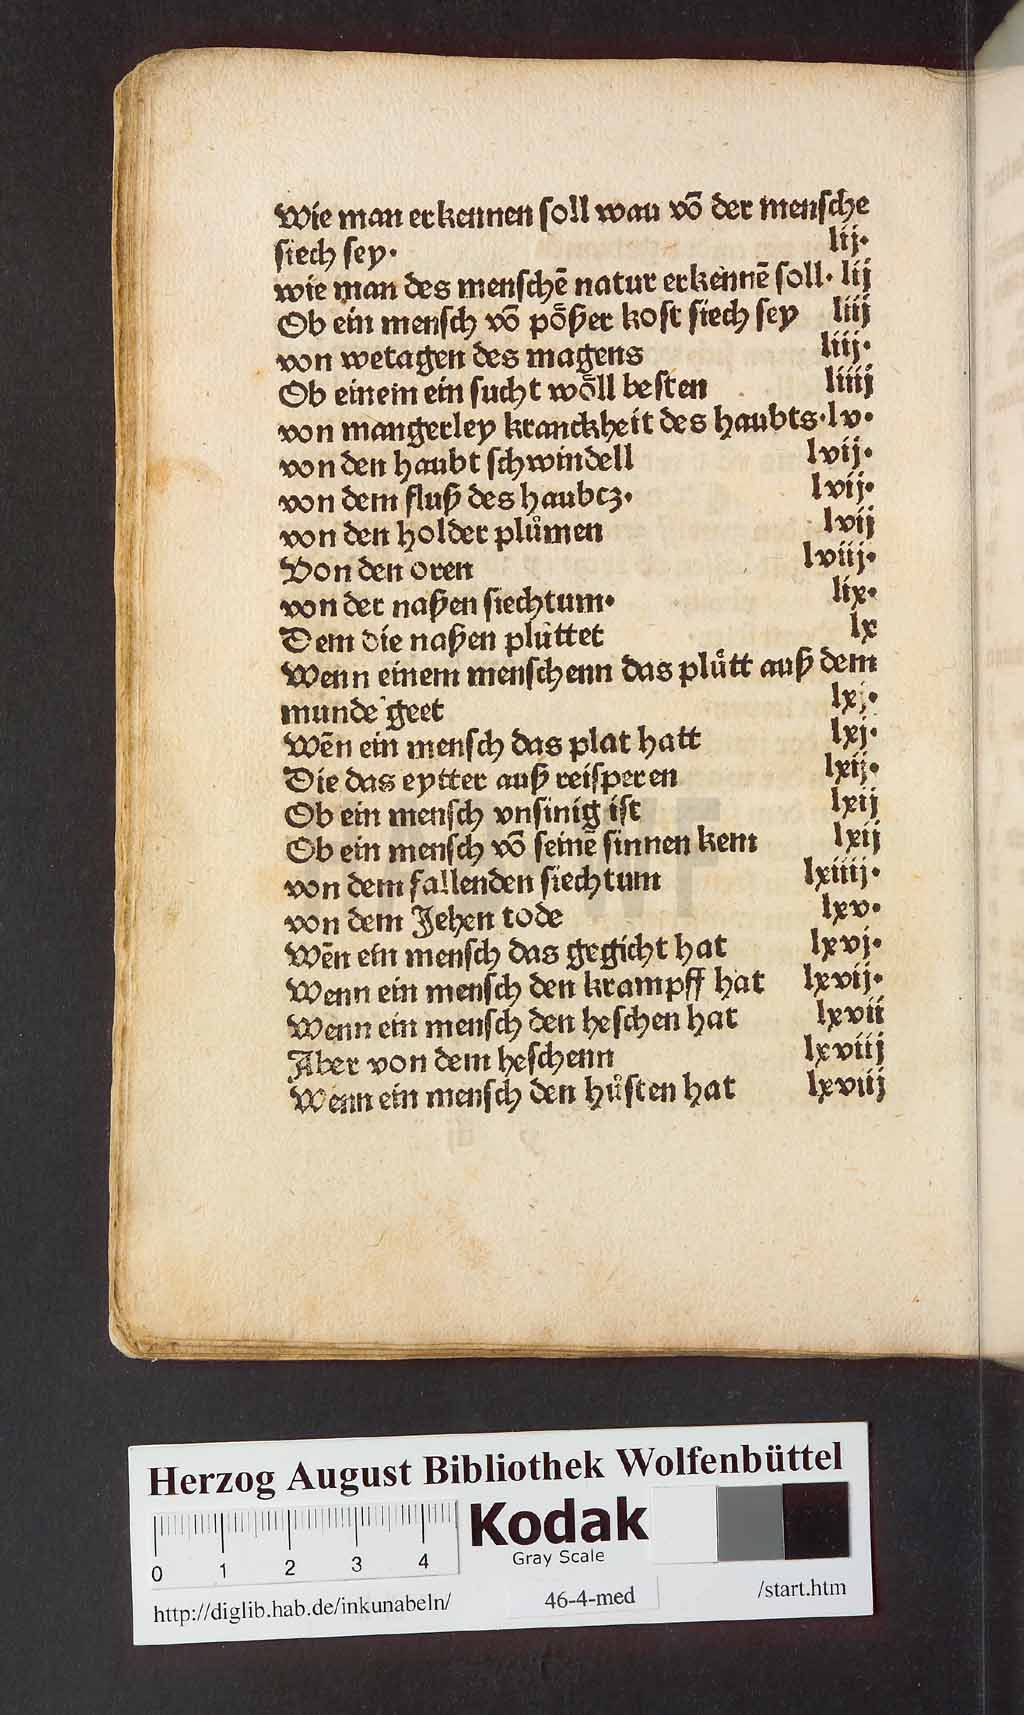 Wie man erkennen soll wau vō der mensche
siech sey. lij.
wie man des menschē natur erkennē soll. lij
Ob ein mensch vō poͤßer kost siech sey liij
von wetagen des magens liij.
Ob einem ein sucht woͤll besten liiij
von mangerley kranckheit des haubts. lv.
von den haubt schwindell lvij.
von dem fluß des haubcz. lvij.
von den holder pluͦmen lvij
Von den oren lviij.
von der naßen siechtum. lix.
Dem die naßen pluͤttet lx
Wenn einem menschenn das pluͤtt auß dem
munde geet lxj.
Wēn ein mensch das plat hatt lxj.
Die das eytter auß reisperen lxij.
Ob ein mensch vnsinig ist lxij
Ob ein mensch vō seinē sinnen kem lxij
von dem fallenden siechtum lxiiij.
von dem Jehen tode lxv.
Wēn ein mensch das gegicht hat lxvj.
Wenn ein mensch den krampff hat lxvij.
Wenn ein mensch den heschen hat lxvii
Aber von dem heschenn lxviij
Wenn ein mensch den huͦsten hat lxviij
Herzog August Bibliothek Wolfenbüttel
Kodak
Gray Scale
0 1 2 3 4
http://diglib.hab.de/inkunabeln/ 46-4-med /start.htm